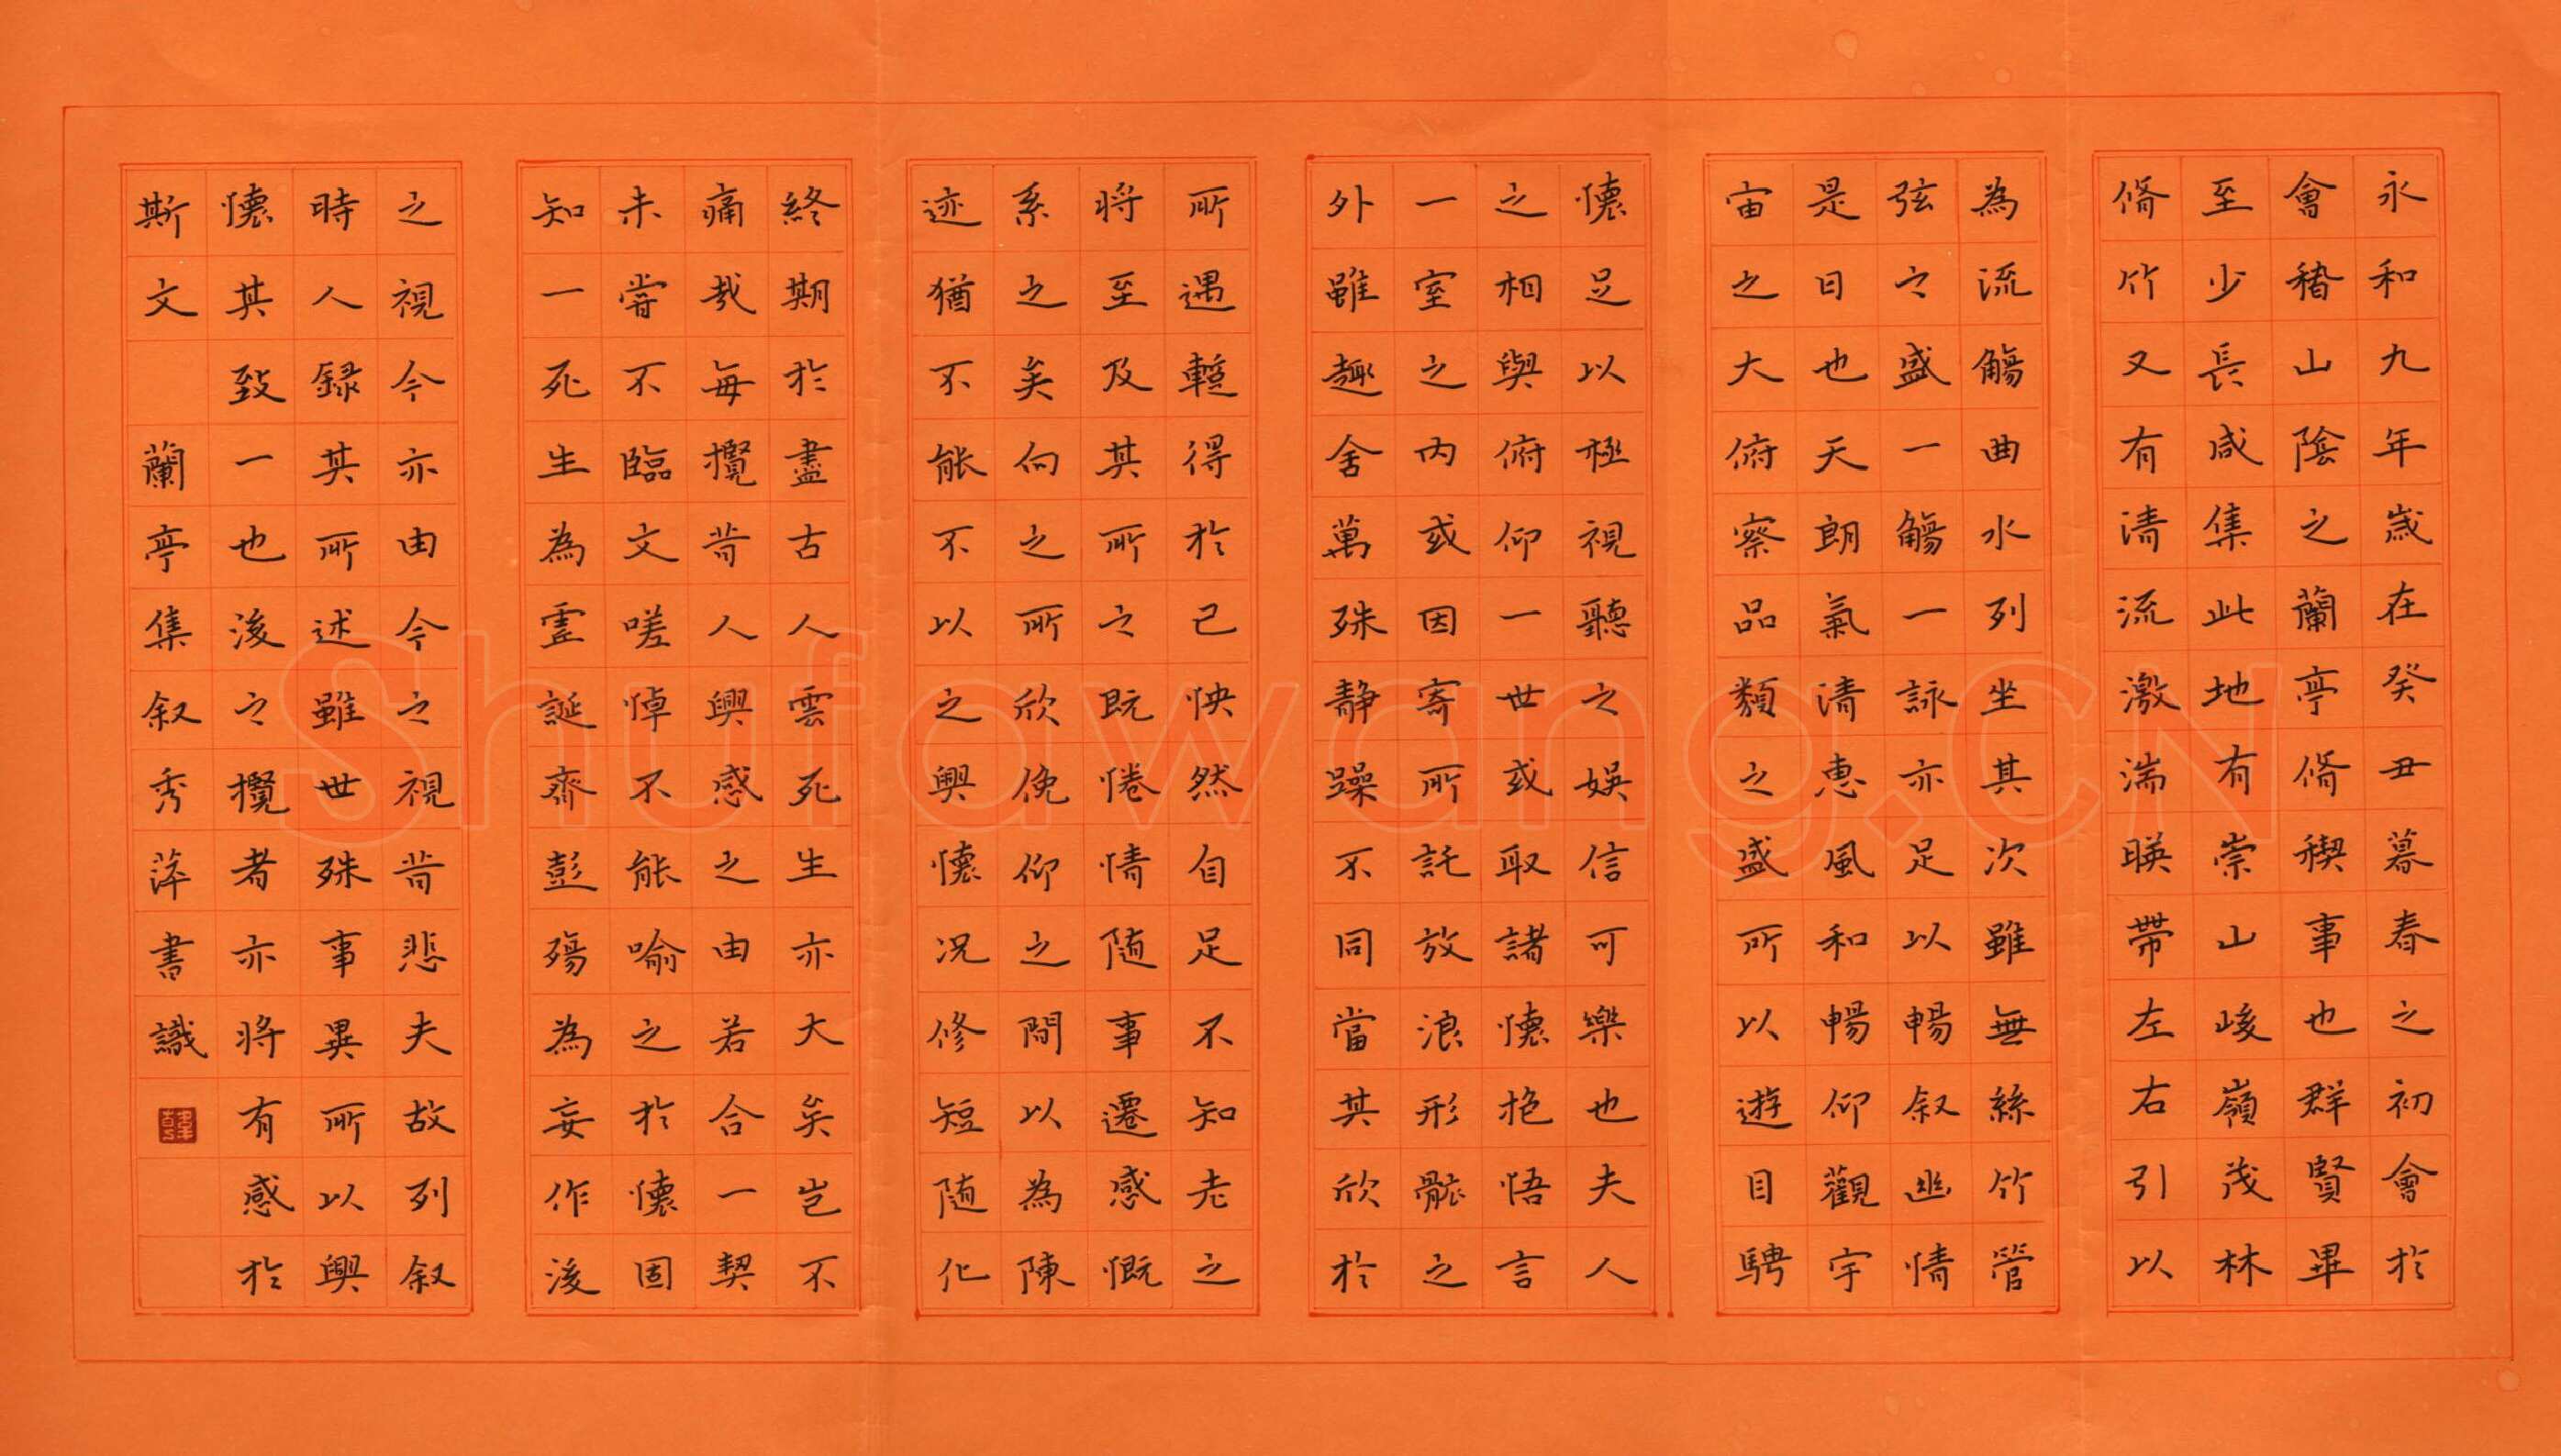 永和九年歲在癸丑暮春之初會於
會稽山陰之蘭亭脩禊事也群賢畢
至少長咸集此地有崇山峻嶺茂林
脩竹又有清流激湍暎帶左右引以
為流觴曲水列坐其次雖無絲竹管
弦之盛一觴一詠亦足以暢叙幽情
是日也天朗氣清惠風和暢仰觀宇
宙之大俯察品類之盛所以遊目騁
懷足以極視聽之娛信可樂也夫人
之相與俯仰一世或取諸懷抱悟言
一室之內或因寄所託放浪形骸之
外雖趣舍萬殊靜躁不同當其欣於
所遇蹔得於己怏然自足不知老之
將至及其所之既惓情随事遷感慨
系之矣向之所欣俛仰之間以為陳
迹猶不能不以之興懷况修短随化
終期於盡古人雲死生亦大矣豈不
痛哉每攬昔人興感之由若合一契
未嘗不臨文嗟悼不能喻之於懷固
知一死生為虛誕齊彭殤為妄作後
之視今亦由今之視昔悲夫故列叙
時人録其所述雖世殊事異所以興
懷其致一也後之攬者亦將有感於
斯文 蘭亭集叙秀萍書識
Shufawang.CN